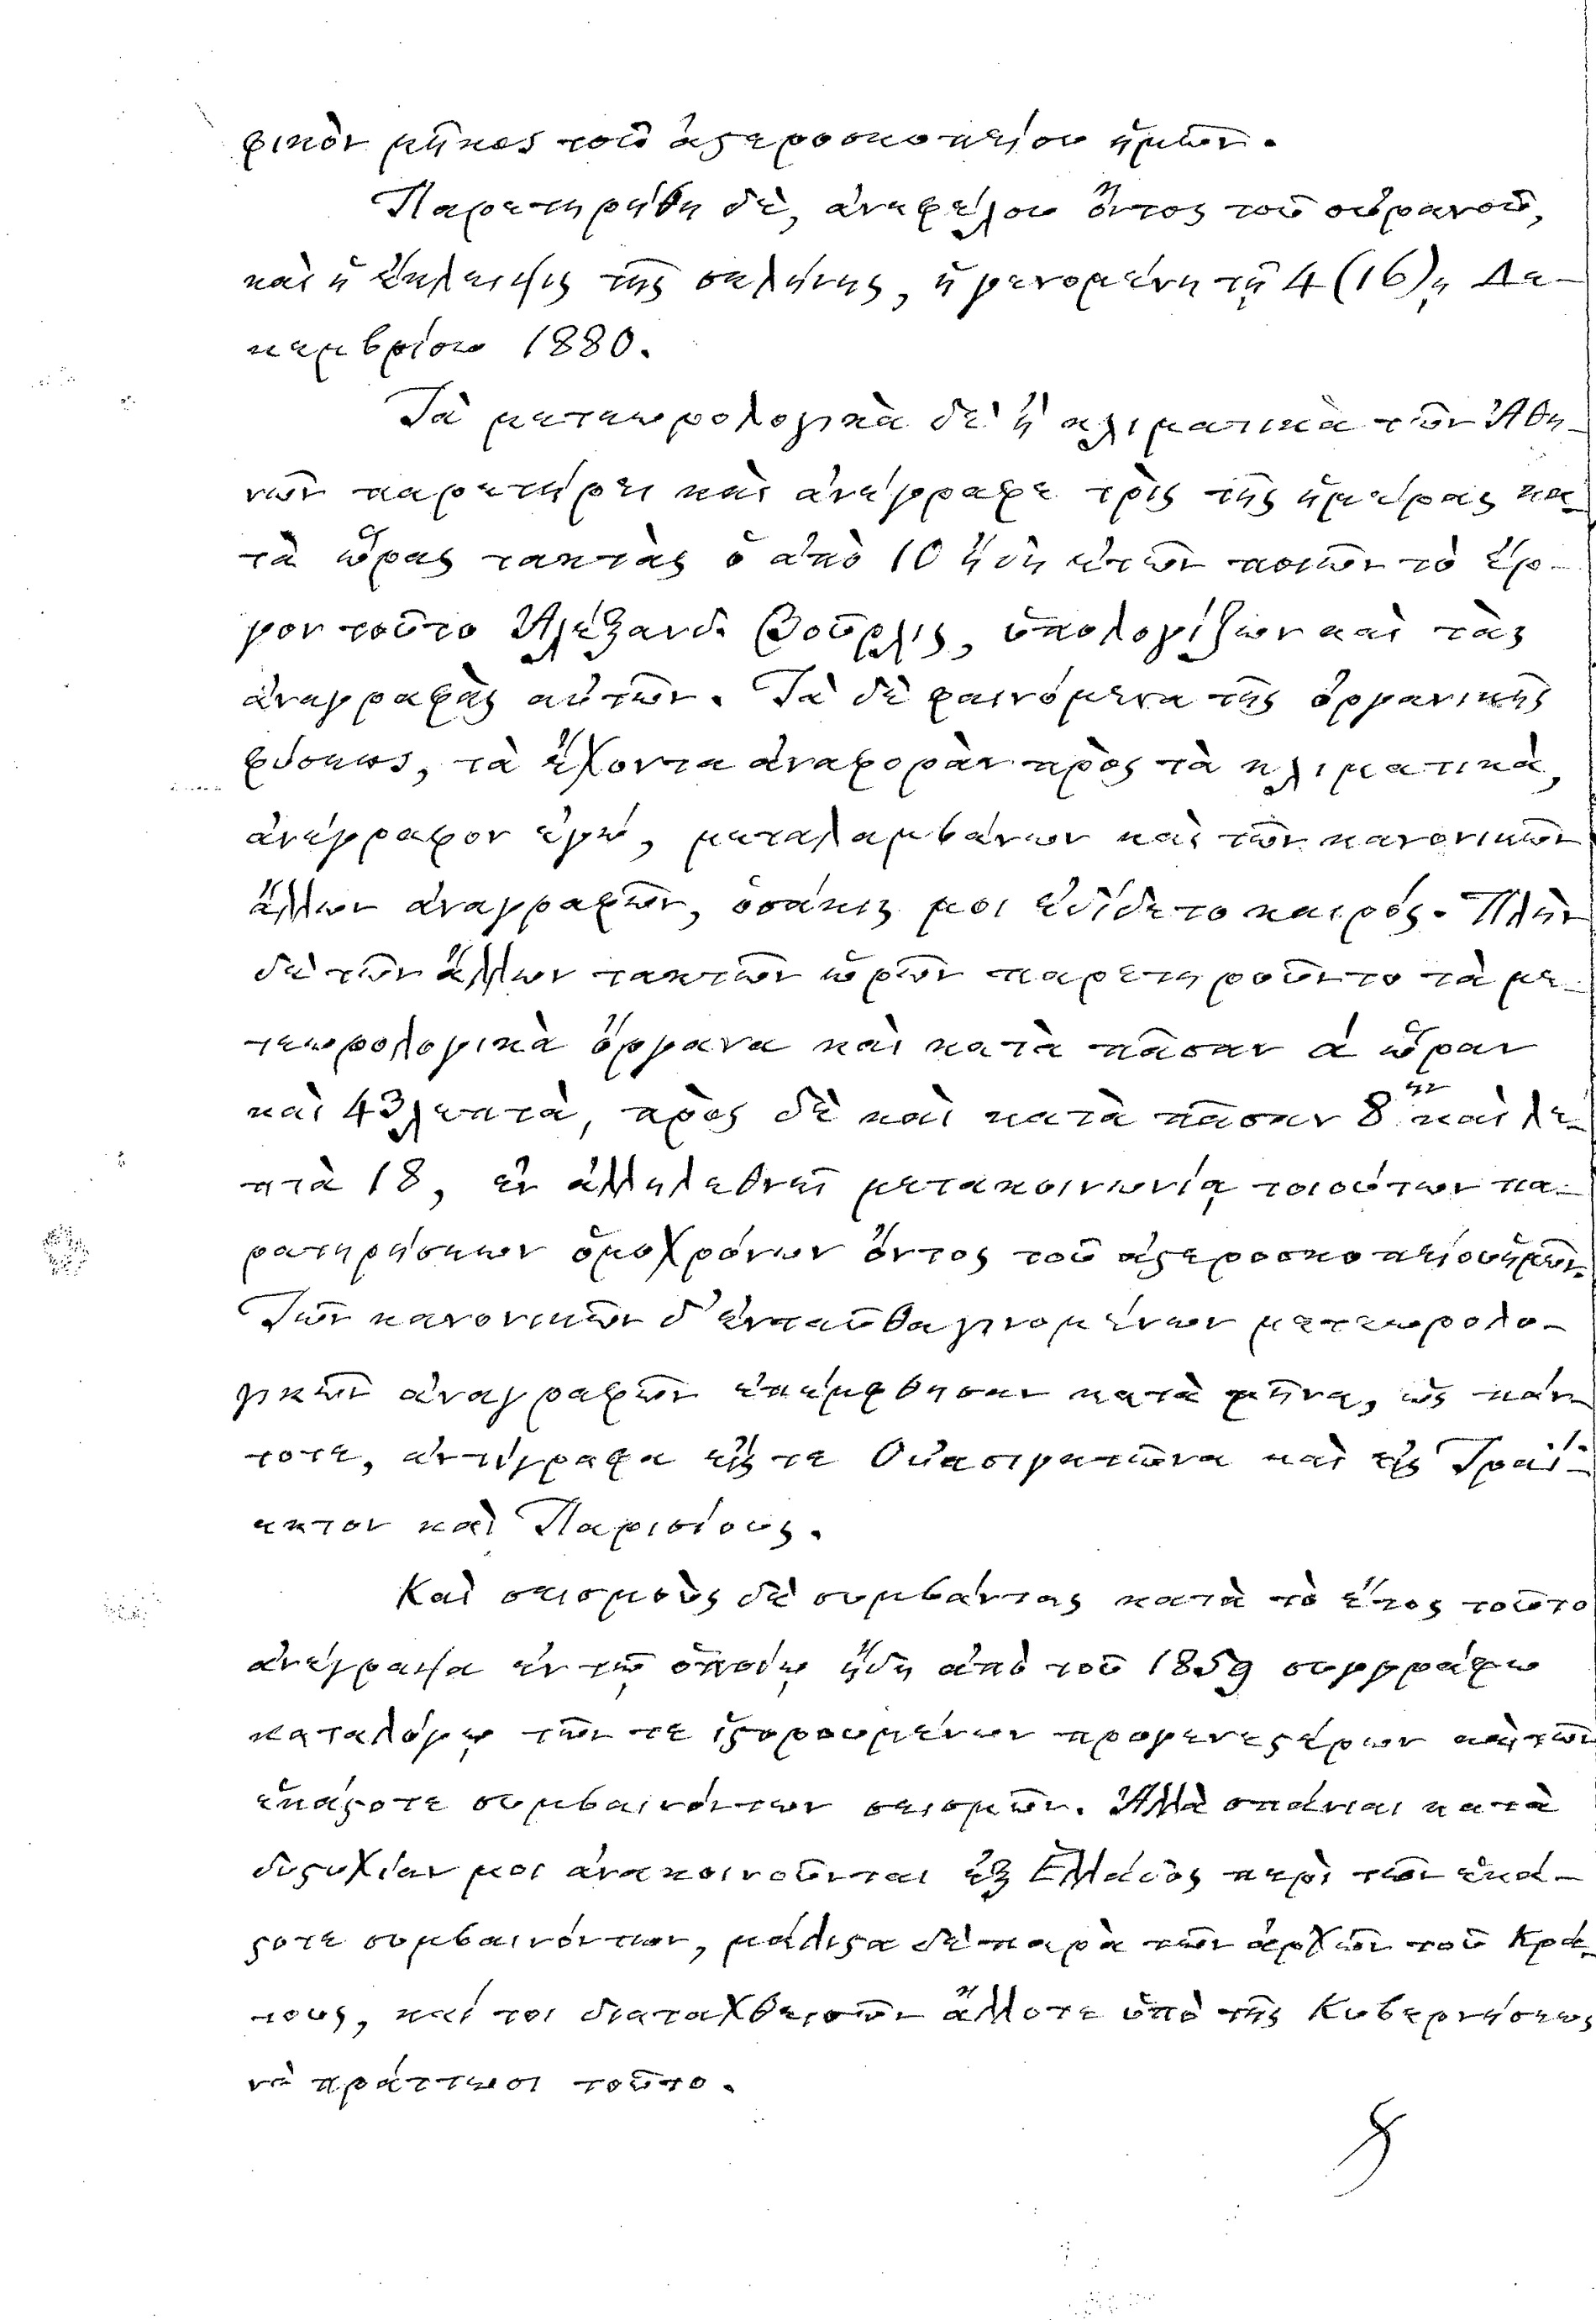 φικὸν μῆκος τοῦ ἀστεροσκοπείου ἡμῶν.
Παρετηρήθη δὲ, ἀνεφέλου ὄντος τοῦ οὐρανοῦ,
καὶ ἡ ἔκλειψις τῆς σελήνης, ἡ γενομένη τῇ 4 (16)ῃ Δε-
κεμβρίου 1880.
Τὰ μετεωρολογικὰ δὲ ἢ κλιματικὰ τῶν Ἀθη-
νῶν παρετήρει καὶ ἀνέγραφε τρὶς τῆς ἡμέρας κα-
τὰ ὥρας τακτὰς ὁ ἀπὸ 10 ἤδη ἐτῶν ποιῶν τὸ ἔρ-
γον τοῦτο Ἀλέξανδ. Βοῦρλις, ὑπολογίζων καὶ τὰς
ἀναγραφὰς αὐτῶν. Τὰ δὲ φαινόμενα τῆς ὀργανικῆς
φύσεως, τὰ ἔχοντα ἀναφορὰν πρὸς τὰ κλιματικὰ,
ἀνέγραφον ἐγώ, μεταλαμβάνων καὶ τῶν κανονικῶν
ἄλλων ἀναγραφῶν, ὁσάκις μοι ἐδίδετο καιρός. Πλὴν
δὲ τῶν ἄλλων τακτῶν ὡρῶν παρετηροῦντο τὰ με-
τεωρολογικὰ ὄργανα καὶ κατὰ πᾶσαν ά ὥραν
καὶ 43 λεπτὰ, πρὸς δὲ καὶ κατὰ πᾶσαν 8ην καὶ λε-
πτὰ 18, ἐν ἀλληλεθνεῖ μετακοινωνίᾳ τοιούτων πα-
ρατηρήσεων ὁμοχρόνων ὄντος τοῦ ἀστεροσκοπείου ἡμῶν.
Τῶν κανονικῶν δ' ἐνταῦθα γινομένων μετεωρολο-
γικῶν ἀναγραφῶν ἐπέμφθησαν κατὰ μῆνα, ὡς πάν-
τοτε, ἀντίγραφα εἴς τε Οὐασιγκτῶνα καὶ εἰς Τραΐ-
εκτον καὶ Παρισίους.
Καὶ σεισμοὺς δὲ συμβάντας κατὰ τὸ ἔτος τοῦτο
ἀνέγραψα ἐν τῷ ὁποίῳ ἤδη ἀπὸ τοῦ 1859 συγγράφω
καταλόγῳ τῶν τε ἱστορουμένων προγενεστέρων καὶ τῶν
ἑκάστοτε συμβαινόντων σεισμῶν. Ἀλλὰ σπάνιαι κατὰ
δυστυχίαν μοι ἀνακοινοῦνται ἐξ Ἑλλάδος περὶ τῶν ἑκά-
στοτε συμβαινόντων, μάλιστα δὲ παρὰ τῶν ἀρχῶν τοῦ Κρά-
τους, καί τοι διαταχθεισῶν ἄλλοτε ὑπὸ τῆς Κυβερνήσεως
νὰ πράττωσι τοῦτο.